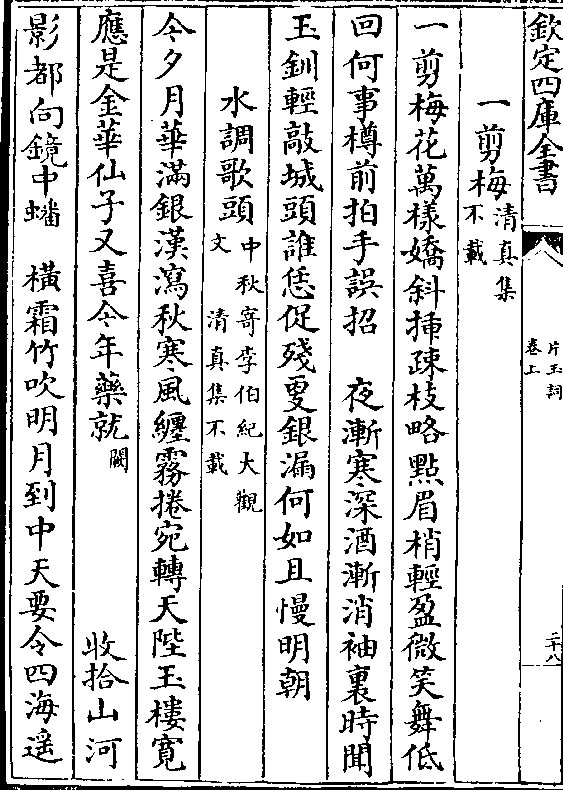 欽定四庫全書
片玉詞
卷上
二十八
一剪梅清真集
不載
一剪梅花萬樣嬌斜揷疎枝略㸃眉梢輕盈微笑舞低
回何事樽前拍手誤招　夜漸寒深酒漸消袖裏時聞
玉釧輕敲城頭誰恁促殘更銀漏何如且慢明朝
水調歌頭中秋寄李伯紀大觀
文　清真集不載
今夕月華滿銀漢瀉秋寒風纏霧捲宛轉天陛玉樓寛
應是金華仙子又喜今年藥就闕　收拾山河
影都向鏡中蟠　橫霜竹吹明月到中天要令四海遥